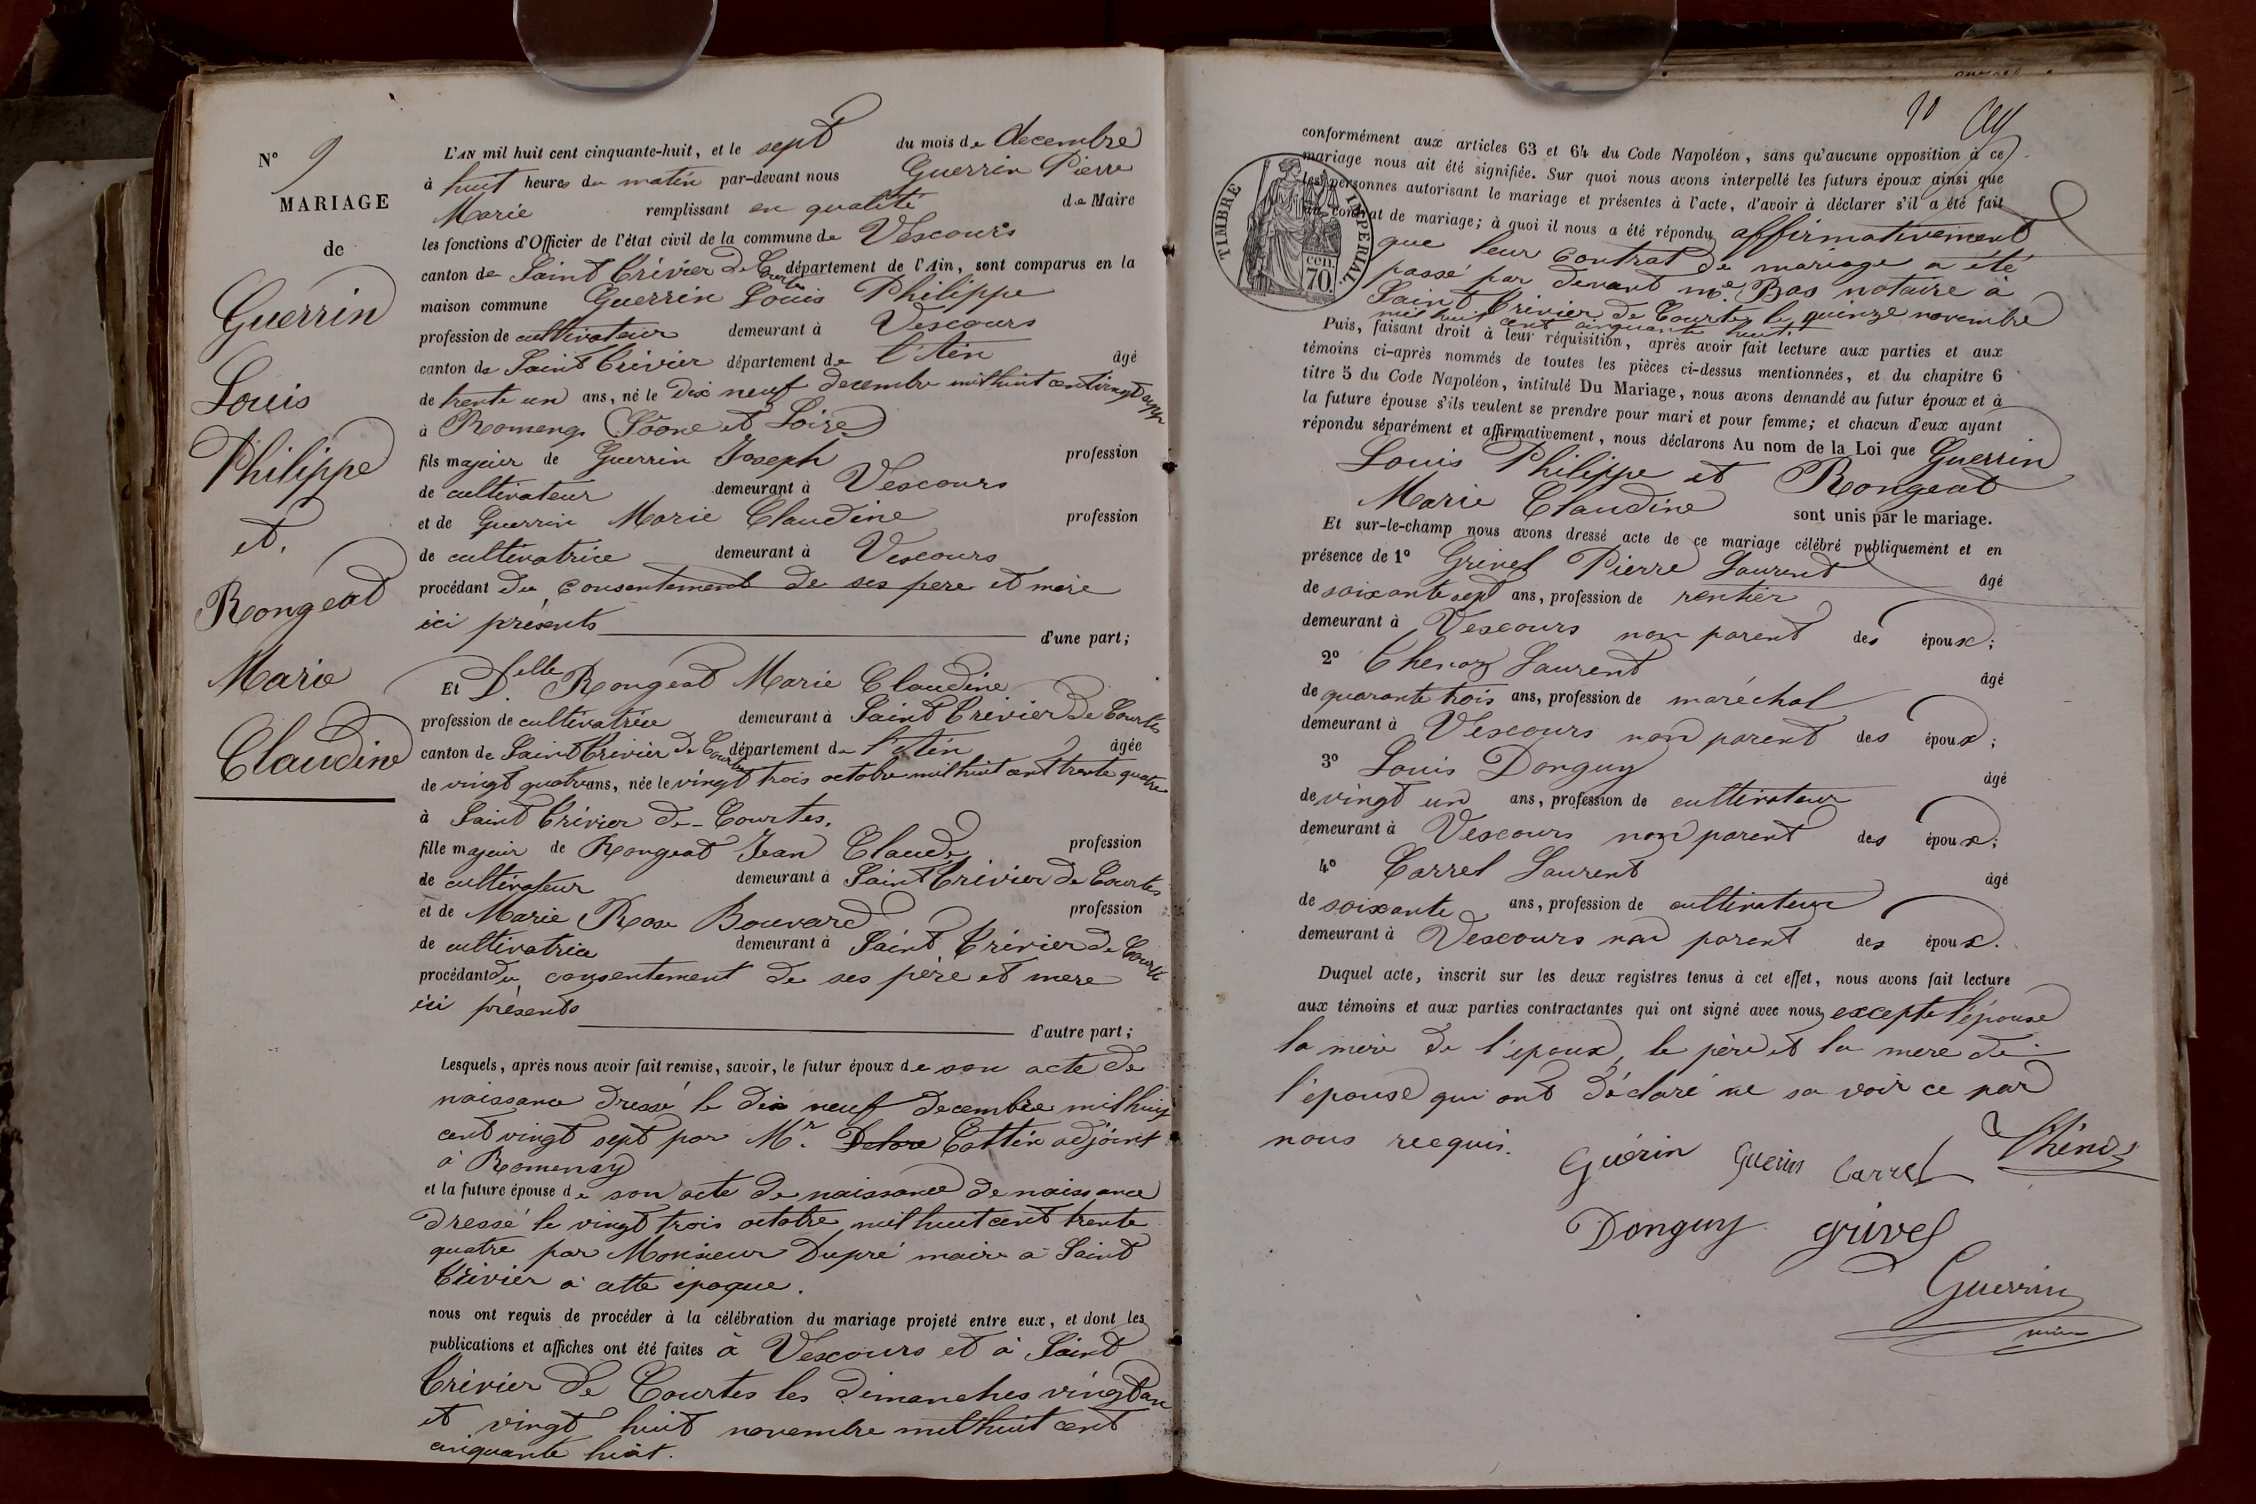 N° 9
MARIAGE
de
Guerrin
Louis
Philippe
et
Rongeat
Marie
Claudine
L'AN mil huit cent cinquante-huit, et le sept du mois de decembre
à huit heures du matin par-devant nous Guerrin Pierre
Marie remplissant en qualité de Maire
les fonctions d'Officier de l'état civil de la commune de Vescours
canton de Saint Trivier de Courtes département de l'Ain, sont comparus en la
maison commune Guerrin Louis Philippe
profession de cultivateur demeurant à Vescours
canton de Saint Trivier département de l'Ain âgé
de trente un ans, né le Dix neuf decembre mil huit cent vingt sept
à Romenay Sâone et Loire
fils majeur de Guerrin Joseph profession
de cultivateur demeurant à Vescours
et de Guerrin Marie Claudine profession
de cultivatrice demeurant à Vescours
procédant du consentement de ses pere et mere
ici présents d'une part;
Et Delle Rongeat Marie Claudine
profession de cultivatrice demeurant à Saint Trivier De Courtes
canton de Saint Trivier de Courtes département de l'Ain âgée
de vingt quatre ans, née le vingt trois octobre mil huit cent trente quatre
à Saint Trivier de Courtes.
fille majeur de Rongeat Jean Claude profession
de cultivateur demeurant à Saint Trivier de Courtes
et de Marie Rose Bouvard profession
de cultivatrice demeurant à Saint Trivier de Courtes
procédant du consentement de ses père et mere
ici présents d'autre part;
Lesquels, après nous avoir fait remise, savoir, le futur époux de son acte de
naissance dressé le dix neuf decembre mil huit
cent vingt sept par Mr. Cottin adjoint
à Romenay
et la future épouse de son acte de naissance de naissance
dressé le vingt trois octobre mil huit cent trente
quatre par Monsieur Dupré maire à Saint
Trivier à cette époque.
nous ont requis de procéder à la célébration du mariage projeté entre eux, et dont les
publications et affiches ont été faites à Vescours et à Saint
Trivier de Courtes les dimanches vingt un
et vingt huit novembre mil huit cent
cinquante huit.
conformément aux articles 63 et 64 du Code Napoléon, sans qu'aucune opposition à ce
mariage nous ait été signifiée. Sur quoi nous avons interpellé les futurs époux ainsi que
les personnes autorisant le mariage et présentes à l'acte, d'avoir à déclarer s'il a été fait
un contrat de mariage; à quoi il nous a été répondu affirmativement
que leur contrat de mariage a été
passé par devant me. Bas notaire à
Saint Trivier de Courtes le quinze novembre
mil huit cent cinquante huit.
TIMBRE IMPERIAL.
cen.
70.
Puis, faisant droit à leur réquisition, après avoir fait lecture aux parties et aux
témoins ci-après nommés de toutes les pièces ci-dessus mentionnées, et du chapitre 6
titre 5 du Code Napoléon, intitulé Du Mariage, nous avons demandé au futur époux et à
la future épouse s'ils veulent se prendre pour mari et pour femme; et chacun d'eux ayant
répondu séparément et affirmativement, nous déclarons Au nom de la Loi que Guerrin
Louis Philippe et Rongeat
Marie Claudine sont unis par le mariage.
Et sur-le-champ nous avons dressé acte de ce mariage célébré publiquement et en
présence de 1° Grivel Pierre Laurent âgé
de soixante sept ans, profession de rentier
demeurant à Vescours non parent des époux;
2° Thenoz Laurent âgé
de quarante trois ans, profession de maréchal
demeurant à Vescours non parent des époux;
3° Louis Donguy âgé
de vingt un ans, profession de cultivateur
demeurant à Vescours non parent des époux;
4° Carrel Laurent âgé
de soixante ans, profession de cultivateur
demeurant à Vescours non parent des époux.
Duquel acte, inscrit sur les deux registres tenus à cet effet, nous avons fait lecture
aux témoins et aux parties contractantes qui ont signé avec nous excepte l'épouse
la mere de l'époux, le père et la mere de
l'épouse qui ont déclaré ne sa voir ce par
nous recquis.
Guérin Guerin Carrel Thénoz
Donguy grivel
Guerrin